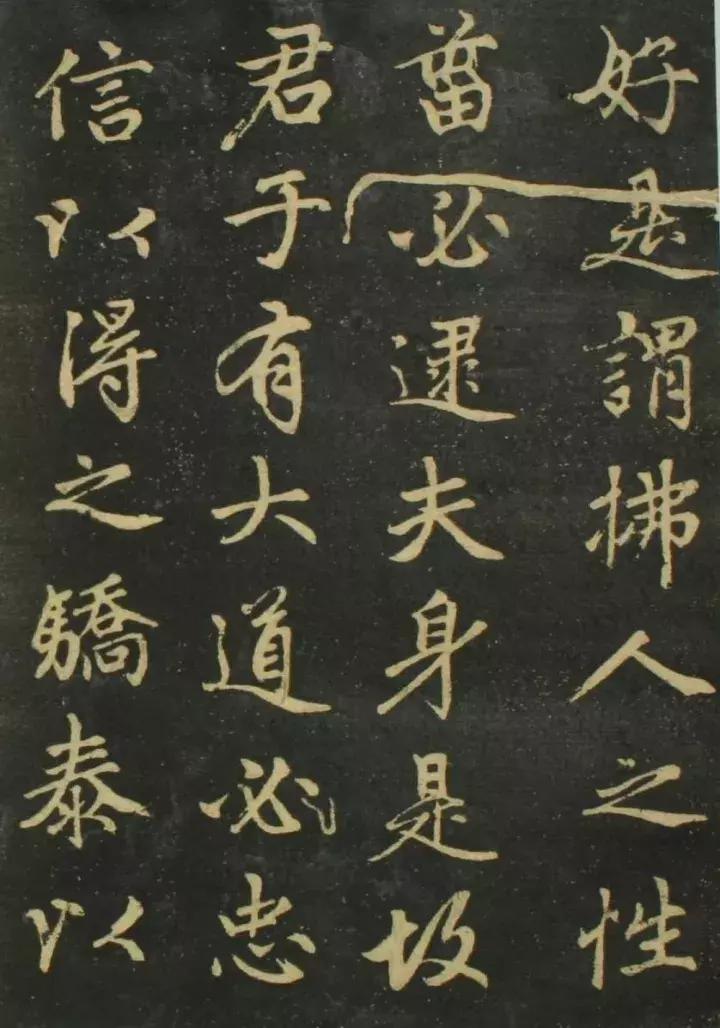 好是謂拂人之性
菑必逮夫身是故
君子有大道必忠
信以得之驕泰以